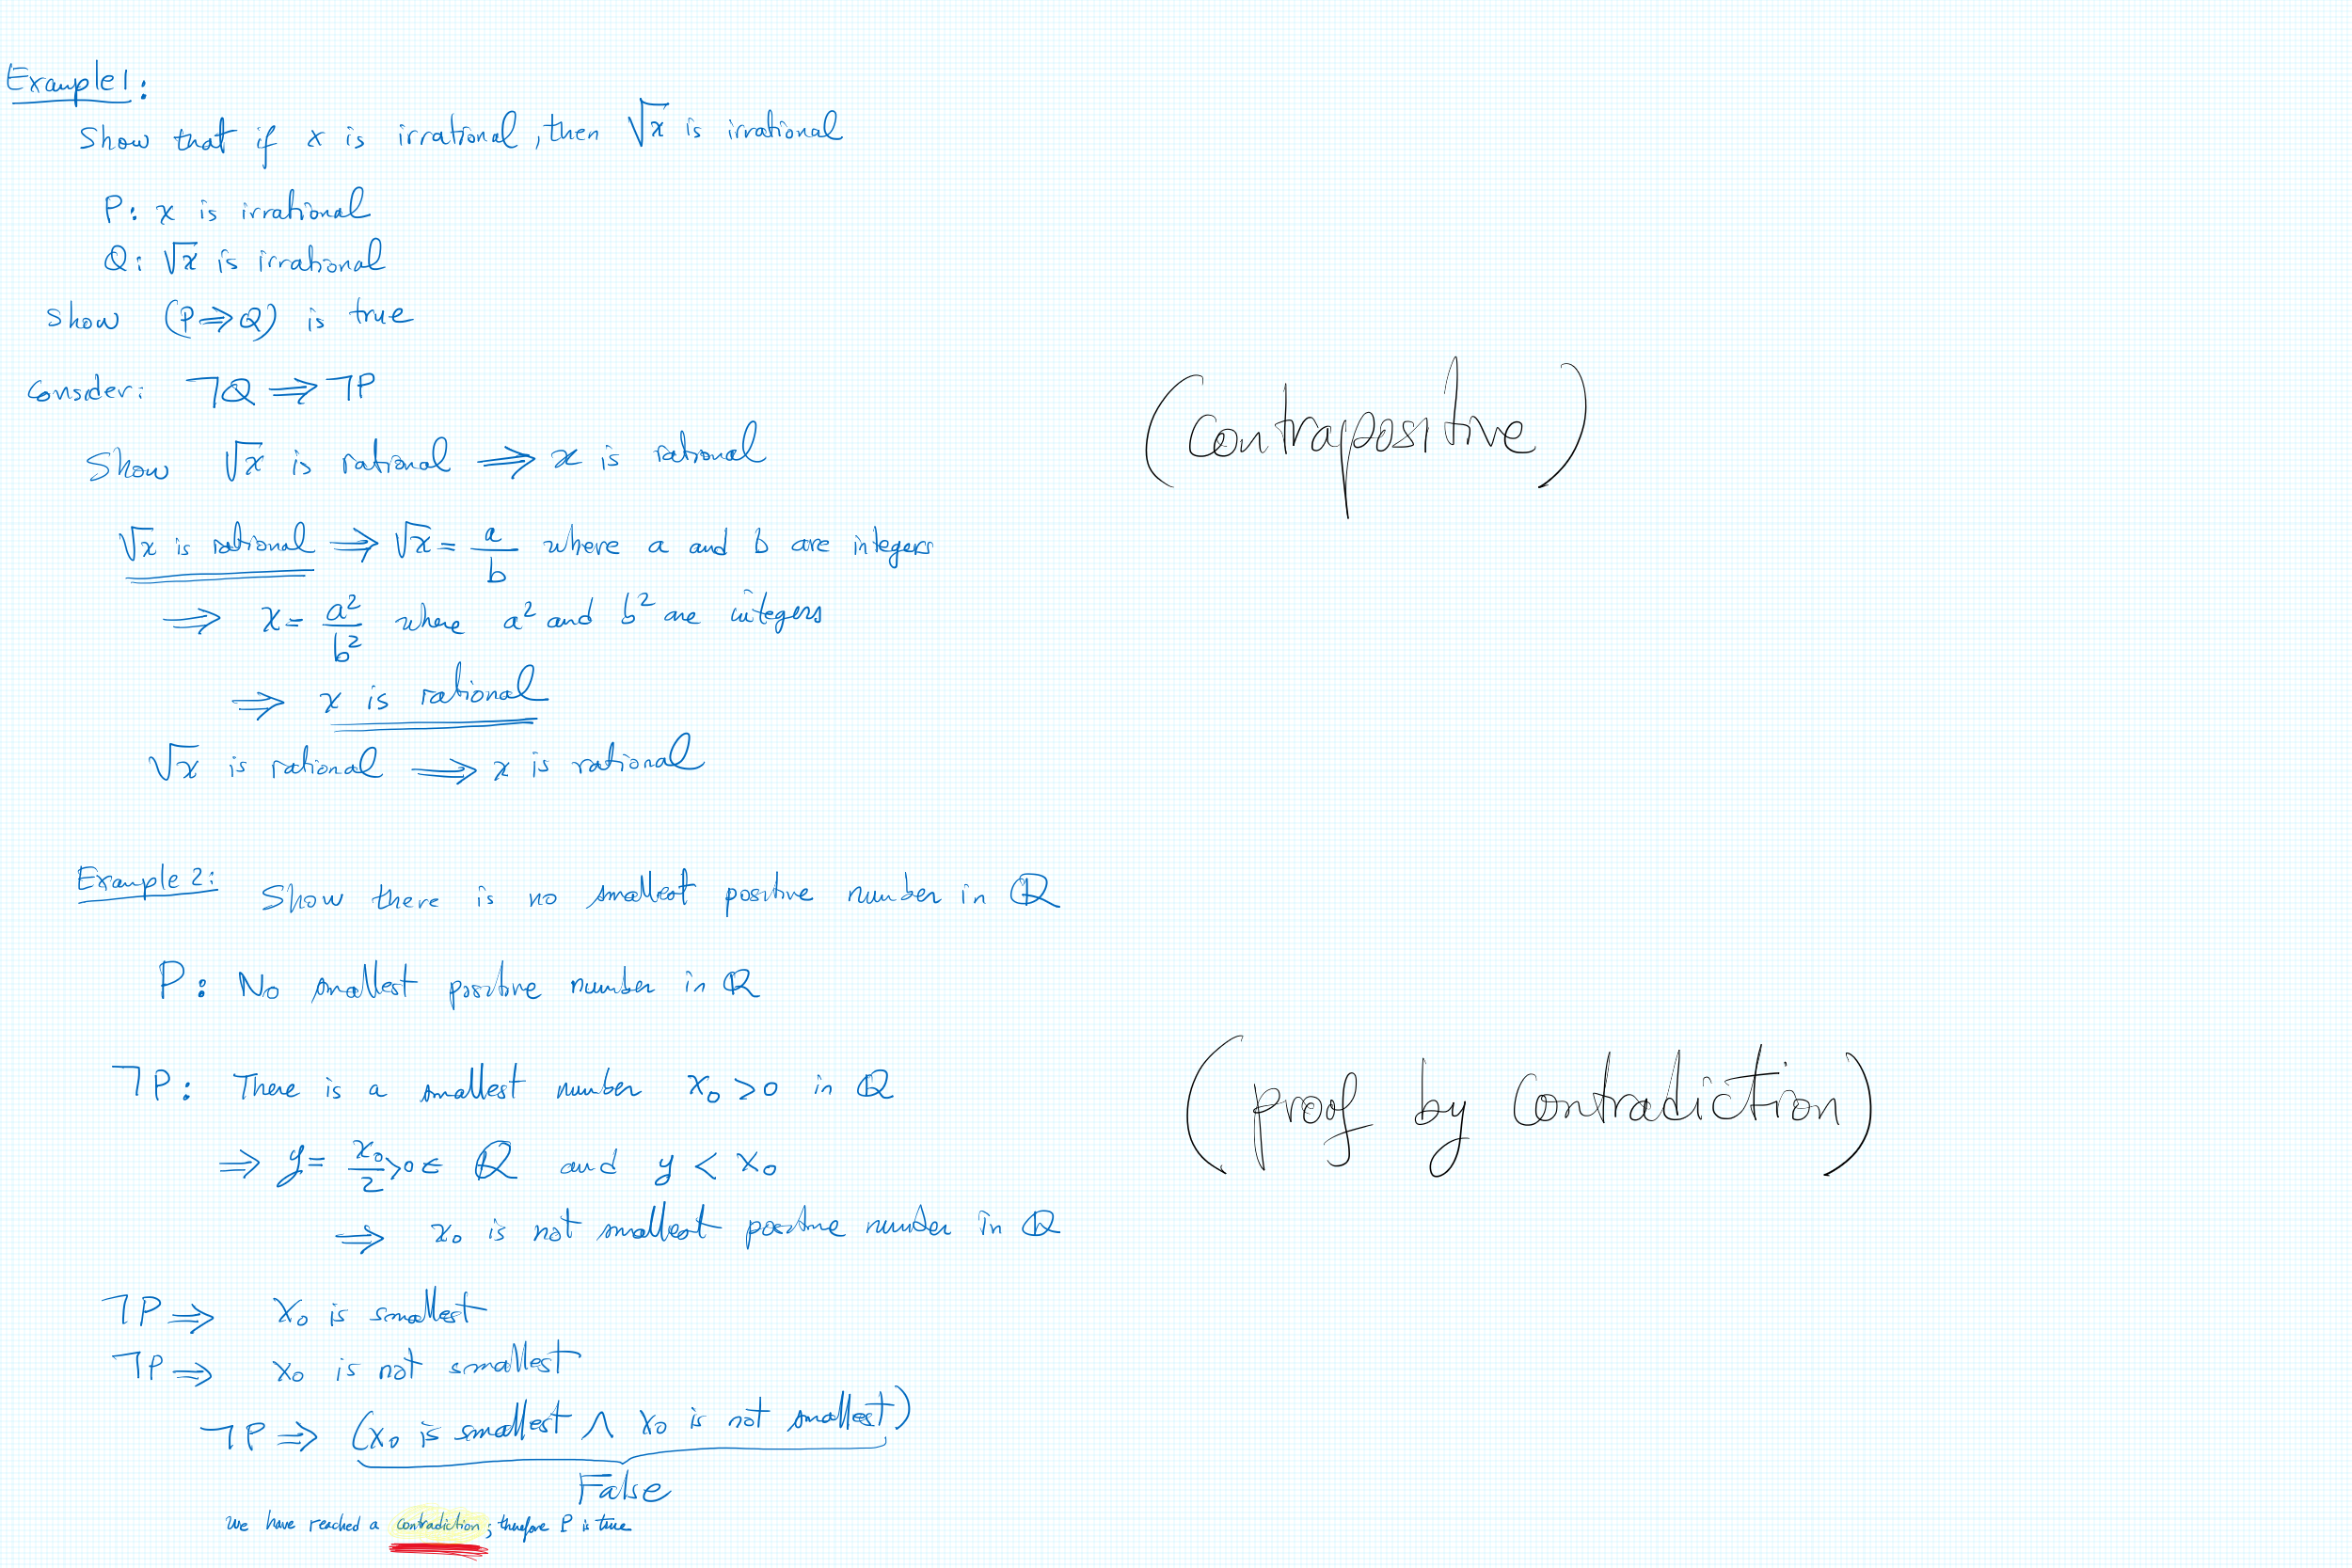 Example 1:
Show that if x is irrational, then √x is irrational
P: x is irrational
Q: √x is irrational
Show (P⇒Q) is true
Consider: ¬Q ⇒ ¬P
(Contrapositive)
Show √x is rational ⇒ x is rational
√x is rational ⇒ √x = a/b where a and b are integers
⇒ x = a²/b² where a² and b² are integers
⇒ x is rational
√x is rational ⇒ x is rational
Example 2: Show there is no smallest positive number in ℚ
P: No smallest positive number in ℚ
¬P: There is a smallest number x₀ > 0 in ℚ
(proof by Contradiction)
⇒ y = x₀/2 > 0 ∈ ℚ and y < x₀
⇒ x₀ is not smallest positive number in ℚ
¬P ⇒ x₀ is smallest
¬P ⇒ x₀ is not smallest
¬P ⇒ (x₀ is smallest ∧ x₀ is not smallest)
False
We have reached a contradiction; therefore P is true